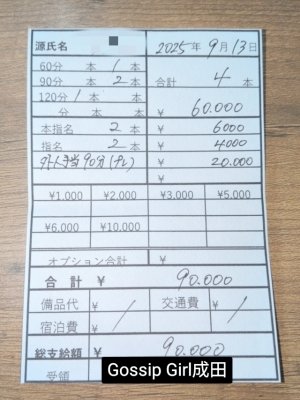 源氏名 2025年 9月 13日
60分 本 1本
90分 本 2本 合計 4本
120分 1本 本
分 本 本 ¥ 60.000
本指名 2本 ¥ 6000
指名 2本 ¥ 4000
手当90分 ¥ 20.000
¥1,000 ¥2,000 ¥3,000 ¥5,000
¥6,000 ¥10,000
オプション合計 ¥
合計 ¥ 90.000
備品代 ¥ / 交通費 ¥ /
宿泊費 ¥ /
総支給額 ¥ 90.000
受領
Gossip Girl成田